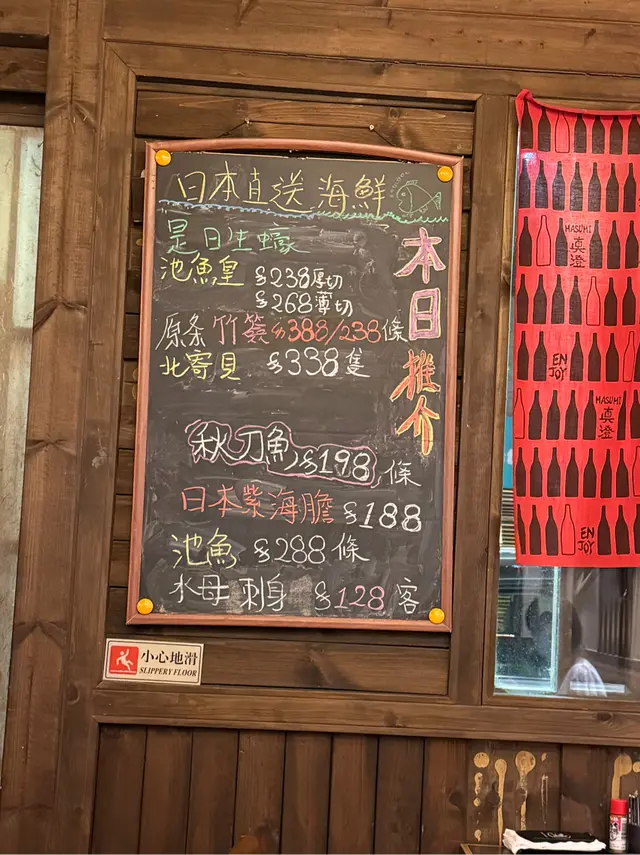 日本直送海鮮
本日推介
是日生蠔
池魚皇 $238厚切
$268薄切
原条竹籤$388/238條
北寄貝 $338隻
秋刀魚 $198 條
日本紫海膽 $188
池魚 $288 條
水母刺身 $128 客
小心地滑
SLIPPERY FLOOR
MASUMI
真澄
EN
JOY
MASUMI
真澄
EN
JOY